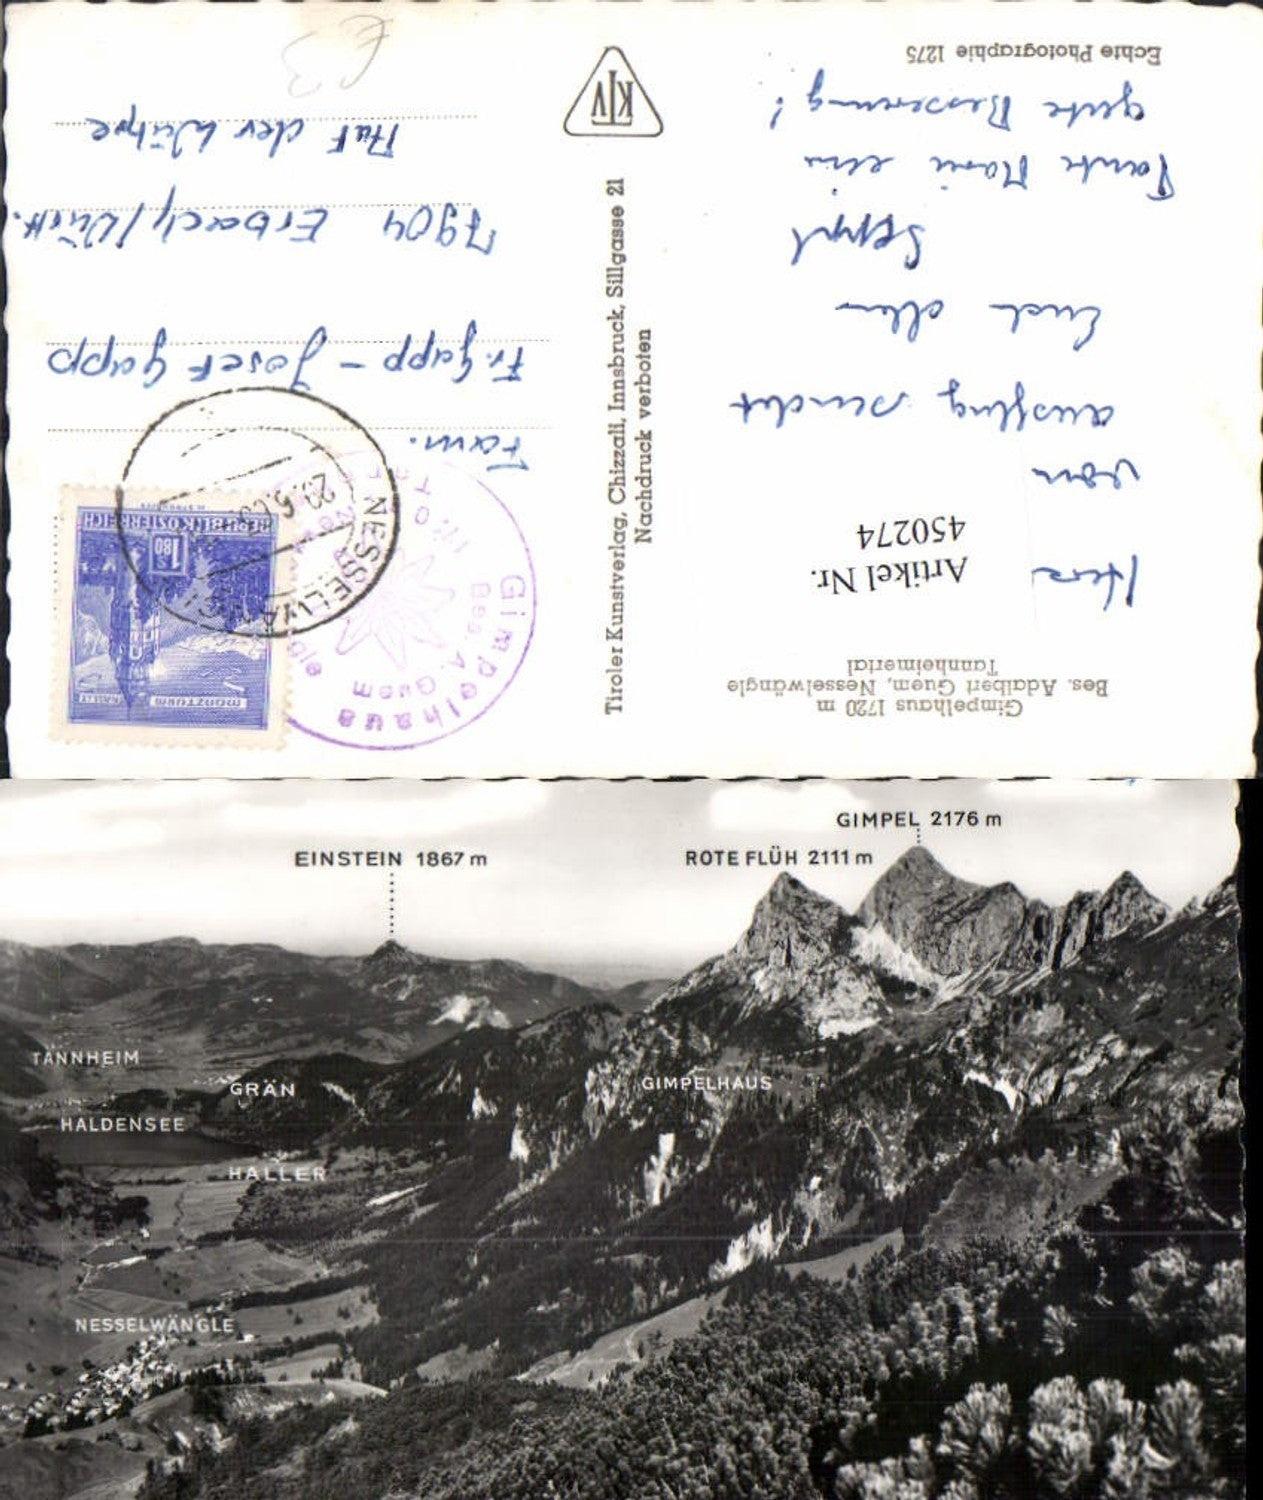 Gimpelhaus 1720 m
Bes. Adalbert Guem, Nesselwängle
Tannheimertal
Artikel Nr.
450274
von
ausflug sendet
Euch allen
Seppl
Tante Mari ein
gute Besserung!
Echte Photographie 1275
Tiroler Kunstverlag, Chizzali, Innsbruck, Sillgasse 21
Nachdruck verboten
KTV
manzturm
HALL I.T.
S 1.80
REPUBLIK ÖSTERREICH
NESSELWÄNGLE
Gimpelhaus
Bes. A. Guem
Tirol
Fam.
Fr. Gapp - Josef Gapp
7904 Erbach/Württ.
Auf der Wühre
EINSTEIN 1867 m
GIMPEL 2176 m
ROTE FLÜH 2111 m
TANNHEIM
GRÄN
GIMPELHAUS
HALDENSEE
HALLER
NESSELWÄNGLE